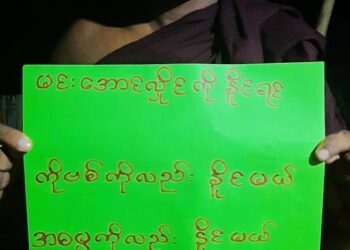 မင်းအောင်လှိုင်ကို နိုင်ရင်
ကိုဗစ်ကိုလည်း နိုင်မယ်
အာဓမ္မကိုလည်း နိုင်မယ်